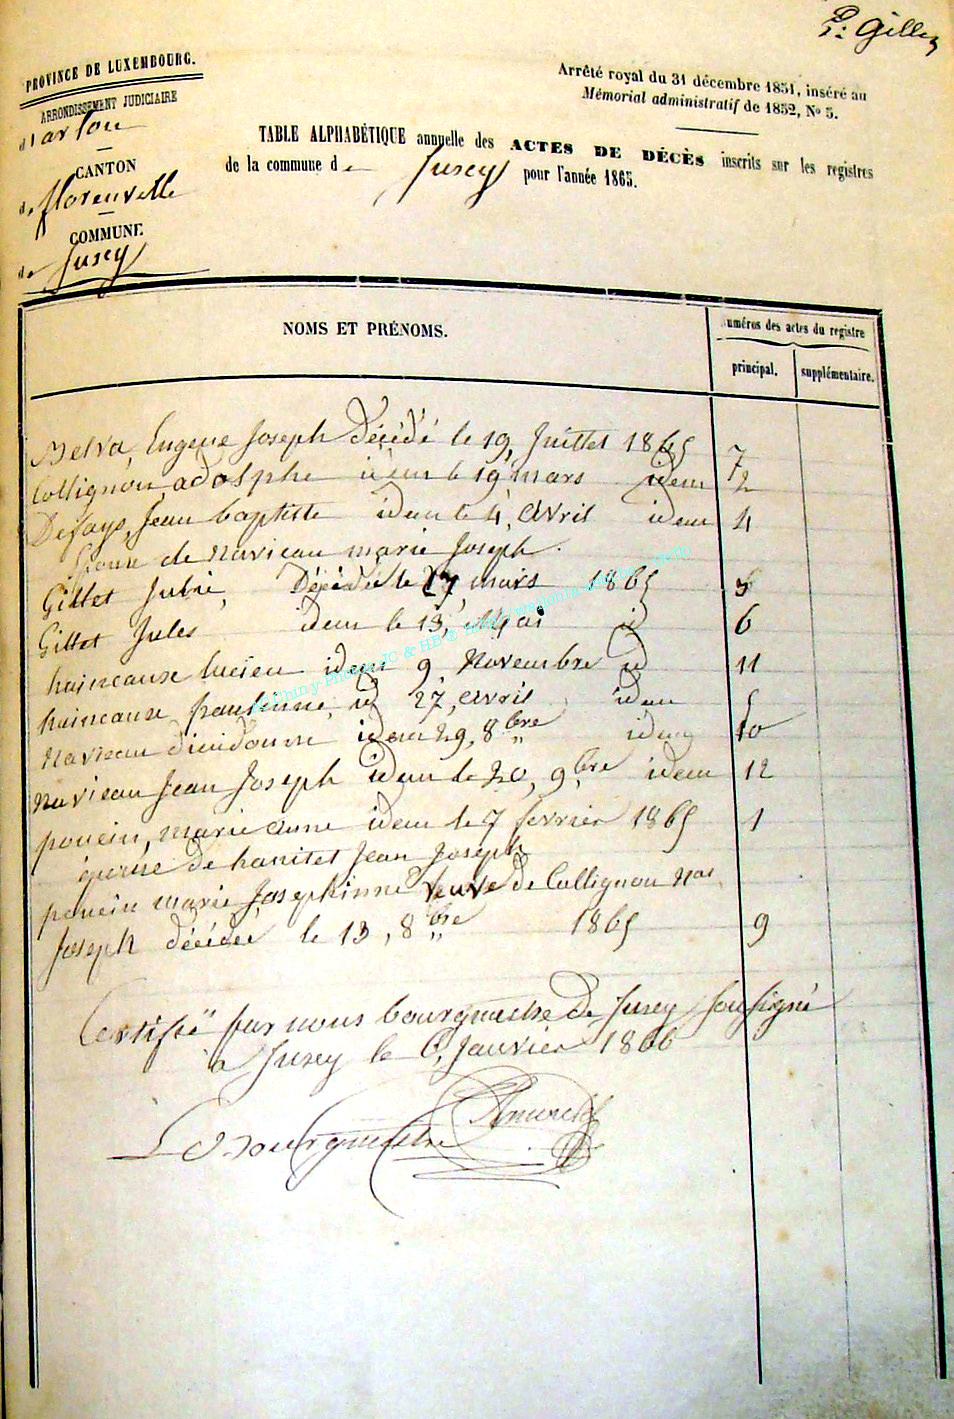 P: Gilles
PROVINCE DE LUXEMBOURG.
ARRONDISSEMENT JUDICIAIRE
d'arlon
CANTON
de florenville
COMMUNE
de Jusey
Arrêté royal du 31 décembre 1851, inséré au
Mémorial administratif de 1852, No 5.
TABLE ALPHABÉTIQUE annuelle des ACTES DE DÉCÈS inscrits sur les registres
de la commune de Jusey pour l'année 1865.
NOMS ET PRÉNOMS.
numéros des actes du registre
principal.
supplémentaire.
Belva, Eugene Joseph décédé le 19, Juillet 1865 7
Collignon, adolphe idem le 19 mars idem 2
Defays, Jean baptiste idem le 4, avril idem 4
Epoux de Navieau marie Joseph.
Gillet Julie, Décédée le 27, mars 1865 3
Gillet Jules idem le 13, Mai id 6
haineaux lucien idem 9, Novembre id 11
haineaux pauline, id 27, avril idem 5
Navieau dieudonné idem 29, 8bre idem 10
Navieau Jean Joseph idem le 20, 9bre idem 12
poncin, marie anne idem le 7 fevrier 1865 1
épouse de hanitet Jean Joseph
poncin marie Josephinne veuve de Collignon Nas
Joseph décédée le 13, 8bre 1865 9
Certifié par nous bourgmestre de Jusey soussigné
à Jusey le 6, Janvier 1866
Le Bourgmestre